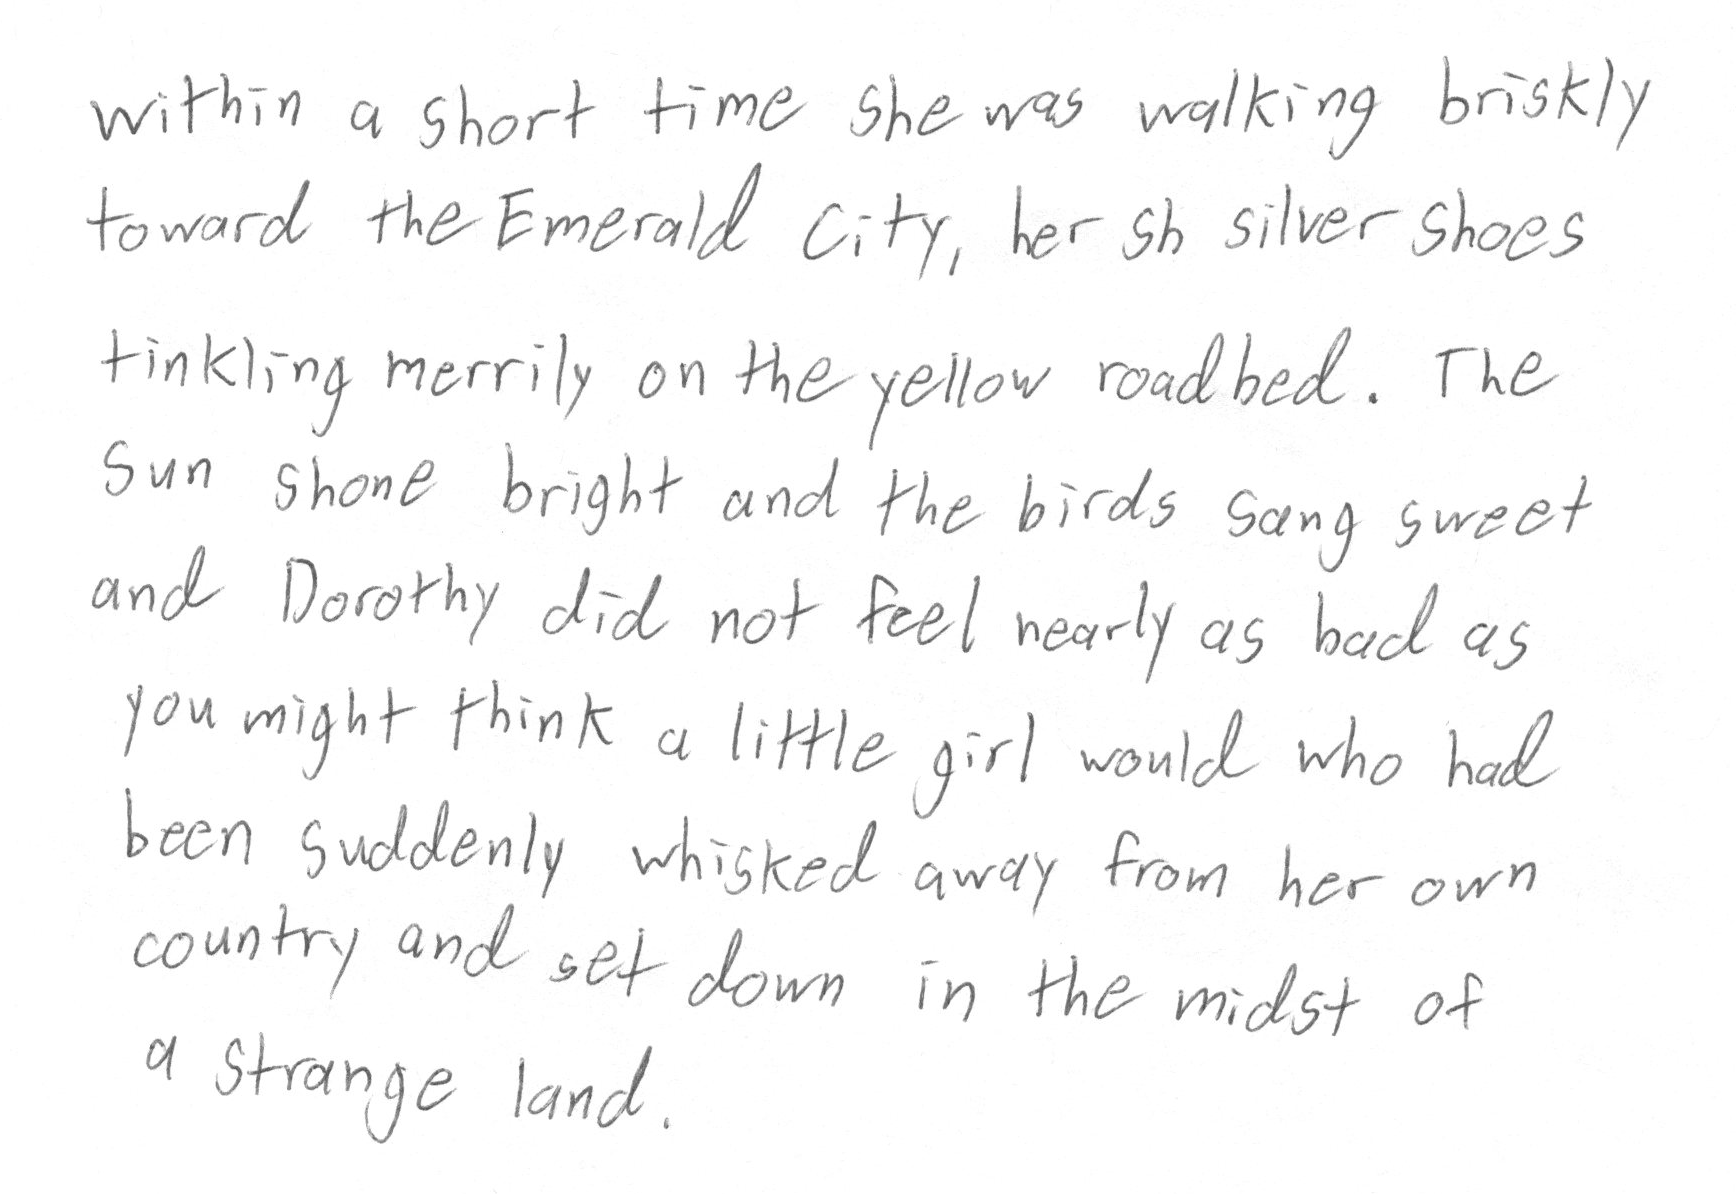 within a short time she was walking briskly
toward the Emerald City, her sh silver shoes
tinkling merrily on the yellow roadbed. The
sun shone bright and the birds sang sweet
and Dorothy did not feel nearly as bad as
you might think a little girl would who had
been suddenly whisked away from her own
country and set down in the midst of
a strange land.